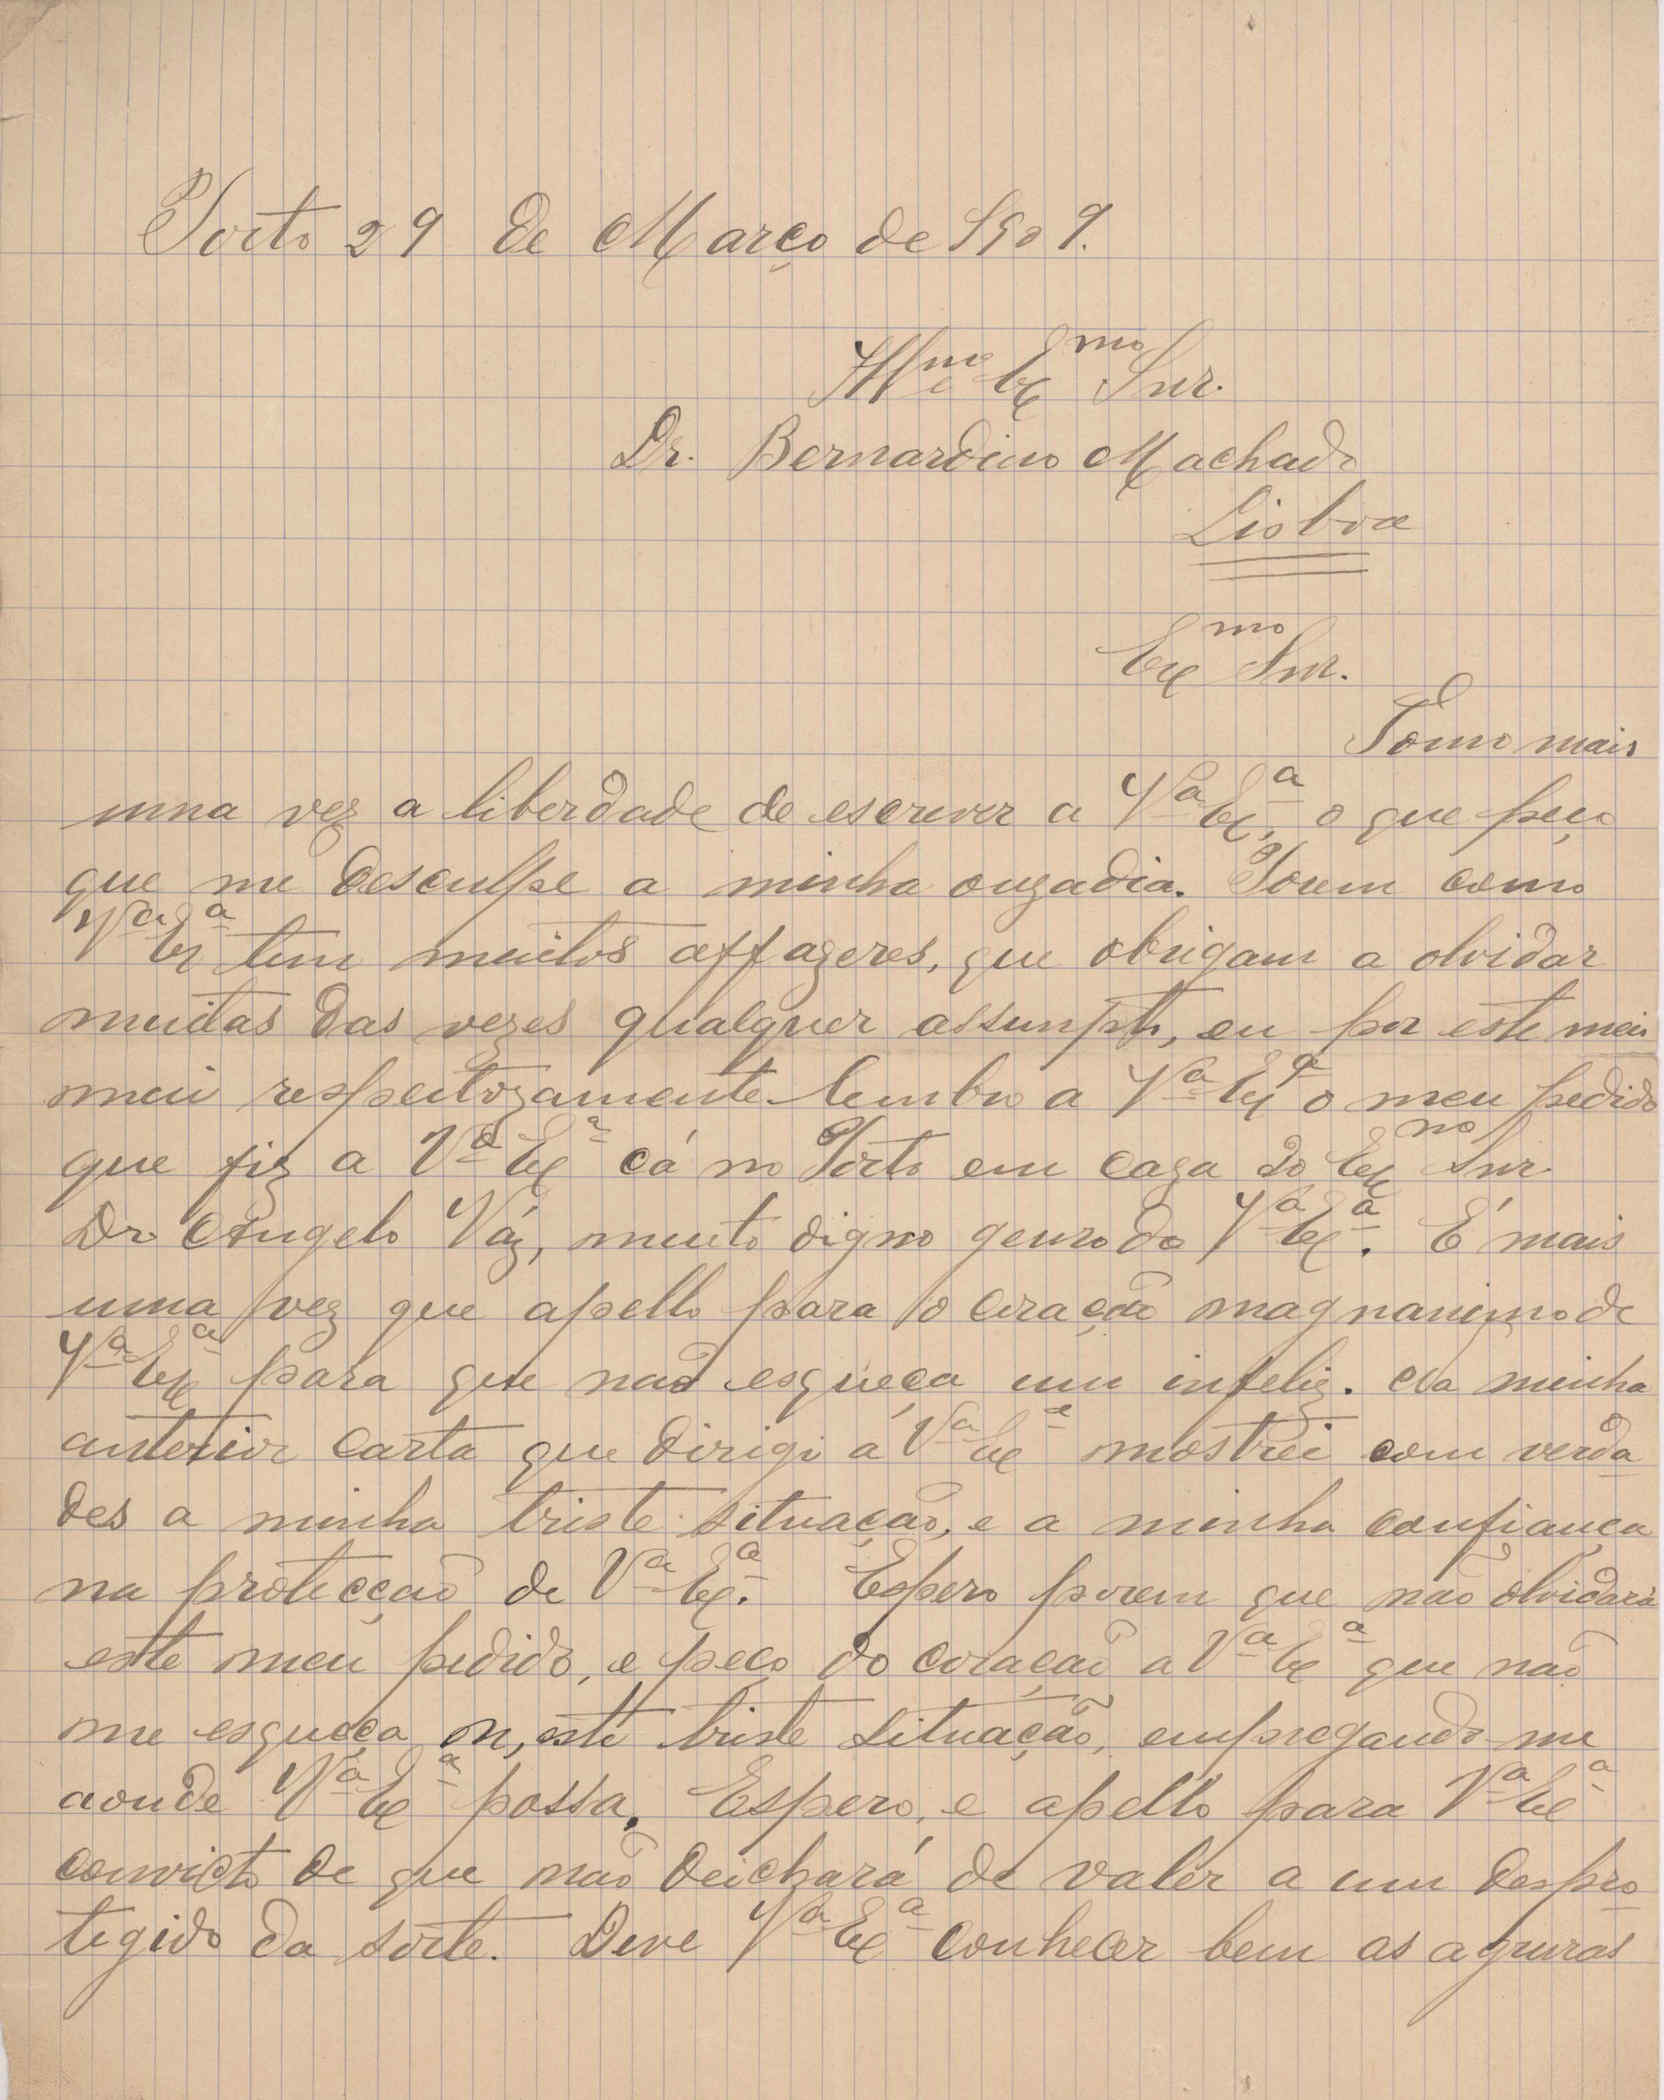 Porto 29 de Março de 1909.
Illmo e Exmo Snr.
Dr. Bernardino Machado
Lisboa
Exmo Snr.
Tomo mais
uma vez a liberdade de escrever a Va Exa, o que peço
que me desculpe a minha ouzadia. Porem como
Va Exa tem muitos affazeres, que obrigam a olvidar
muitas das vezes qualquer assumpto, eu por este meio
mui respeitozamente lembro a Va Exa o meu pedido
que fiz a Va Exa cá no Porto em caza do Exmo Snr.
Dr. Angelo Váz, muito digno genro de Va Exa. É mais
uma vez que apello para o coração magnanimo de
Va Exa para que não esqueça um infeliz. Na minha
anterior carta que dirigi á Va Exa mostrei com verda
des a minha triste situação, e a minha confiança
na protecção de Va Exa. Espero porem que não olvidará
este meu pedido, e peço do coração a Va Exa que não
me esqueça n'esta triste situação, empregando-me
aonde Va Exa possa. Espero, e apello para Va Exa
convicto de que não deichará de valer a um despro
tegido da sorte. Deve Va Exa conhecer bem as agruras